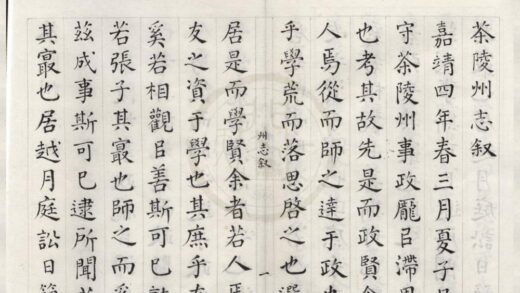 茶陵州志叙
嘉靖四年春三月夏子
守茶陵州事政龎㠯滯
也考其故先是而政賢余
人焉從而師之達于政
乎學荒而落思啓之也
州志叙
一
居是而學賢余者若人焉
友之資于學也其庶乎
奚若相觀㠯善斯可巳
若張子其㝡也師之而
茲成事斯可巳逮所聞
其㝡也居越月庭訟日